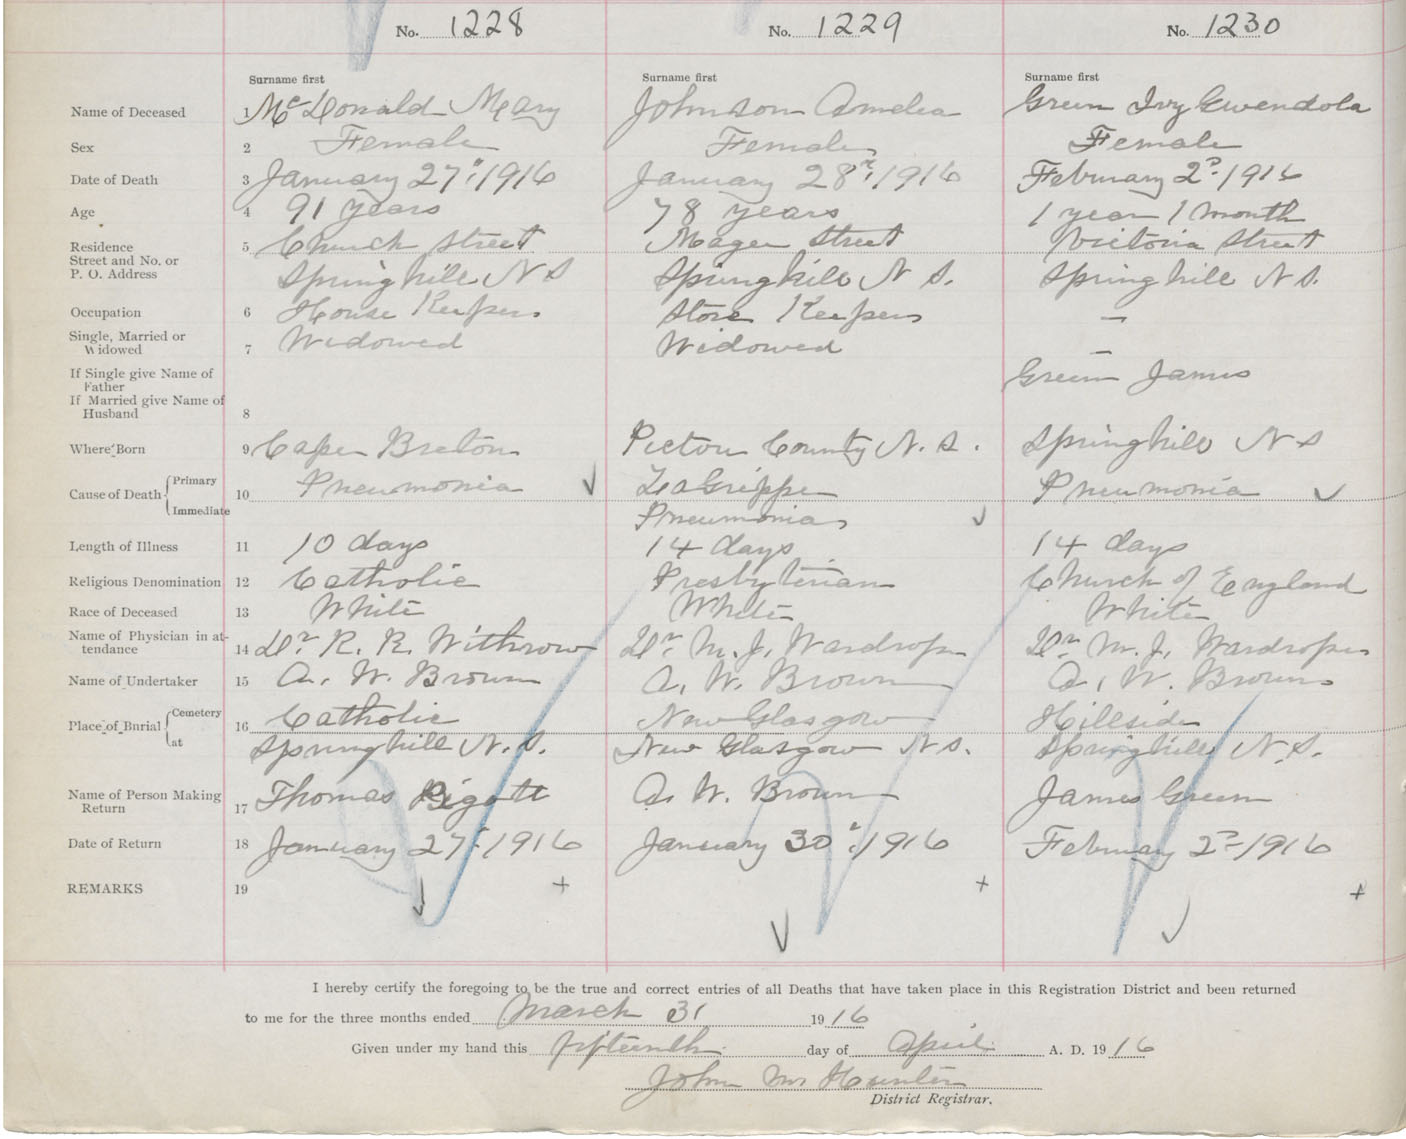 No. 1228 No. 1229 No. 1230
Surname first Surname first Surname first
Name of Deceased 1 McDonald Mary Johnson Amelea Green Ivy Gwendola
Sex 2 Female Female Female
Date of Death 3 January 27th 1916 January 28th 1916 February 2nd 1916
Age 4 91 years 78 years 1 year 1 month
Residence 5 Church Street Street Victoria Street
Street and No. or
P. O. Address Springhill N S Springhill N S. Springhill N S.
Occupation 6 House Keeper Store Keeper —
Single, Married or
Widowed 7 Widowed Widowed —
If Single give Name of
Father Green James
If Married give Name of
Husband 8
Where Born 9 Cape Breton Pictou County N. S. Springhill N S
Cause of Death Primary 10 Pneumonia La Grippe Pneumonia
Immediate Pneumonia
Length of Illness 11 10 days 14 days 14 days
Religious Denomination 12 Catholic Presbyterian Church of England
Race of Deceased 13 White White White
Name of Physician in at-
tendance 14 Dr R. R. Withrow Dr. M. J. Wardrope Dr. M. J. Wardrope
Name of Undertaker 15 A. W. Brown A. W. Brown A. W. Brown
Place of Burial Cemetery 16 Catholic New Glasgow Hillside
at Springhill N. S. New Glasgow N S. Springhill N. S.
Name of Person Making
Return 17 Thomas Pigott A. W. Brown James Green
Date of Return 18 January 27th 1916 January 30th 1916 February 2nd 1916
REMARKS 19 + + +
I hereby certify the foregoing to be the true and correct entries of all Deaths that have taken place in this Registration District and been returned
to me for the three months ended March 31 1916
Given under my hand this fifteenth day of April A. D. 1916
John M Hunter
District Registrar.